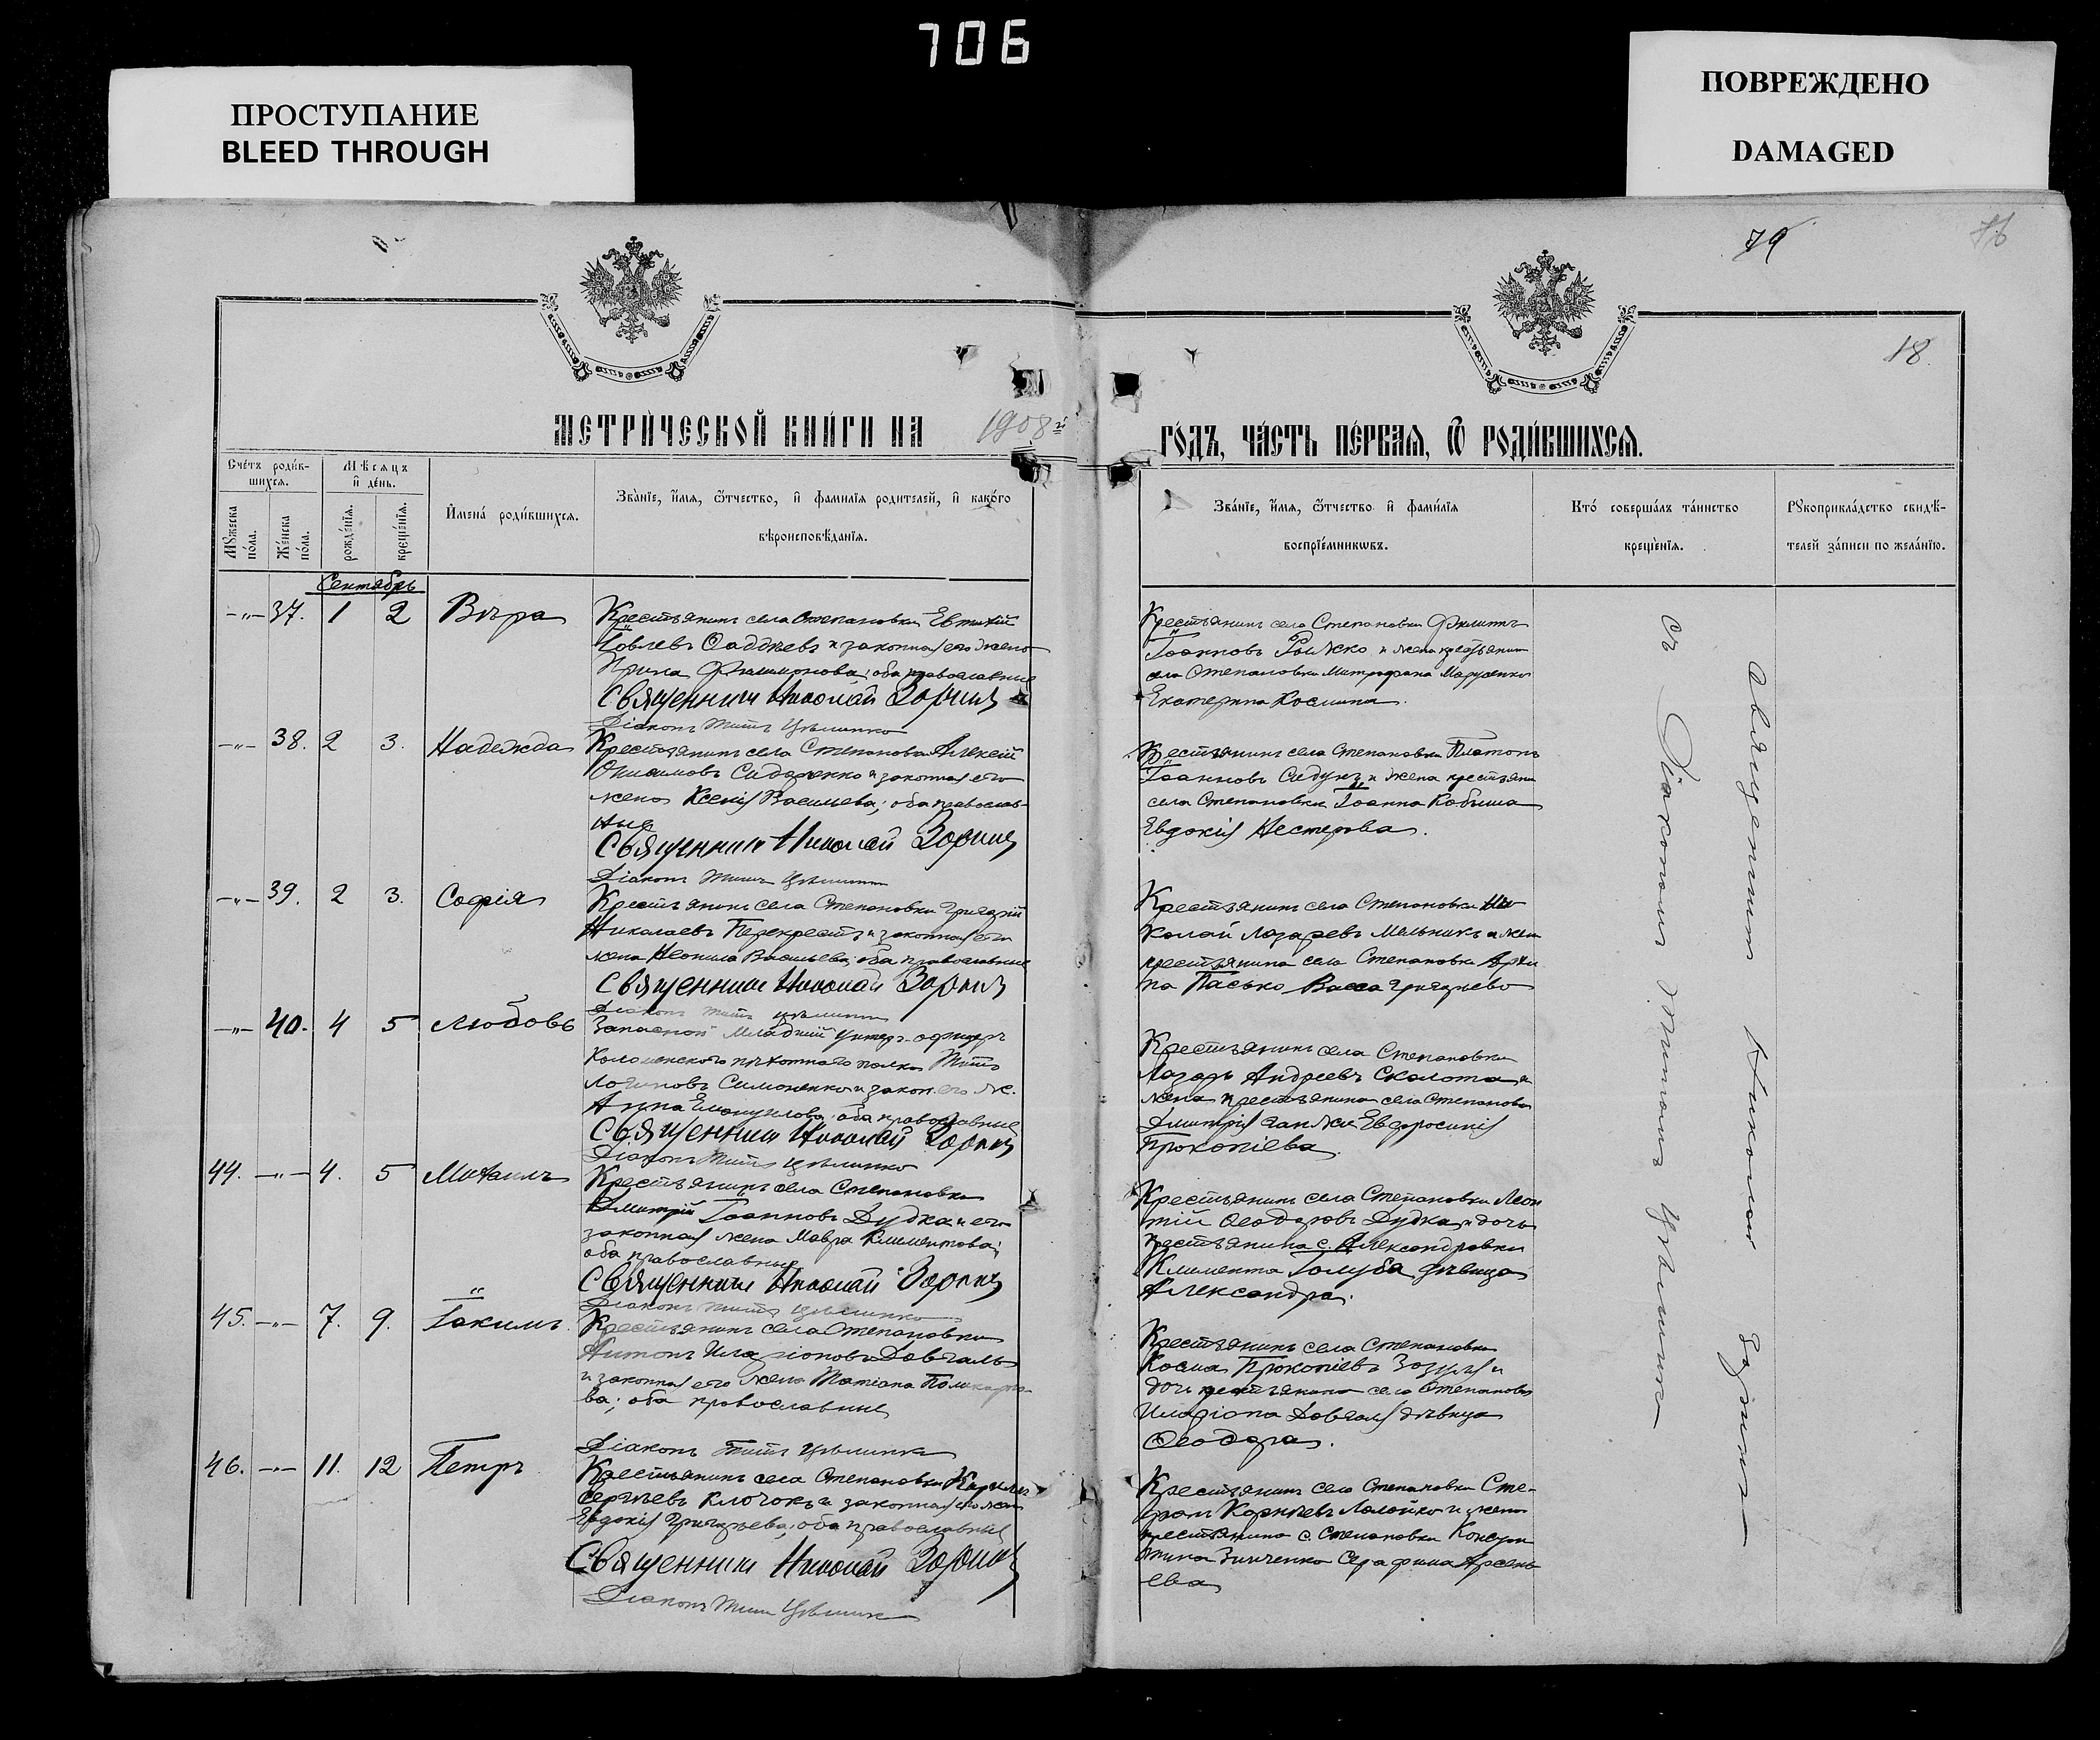 706
ПРОСТУПАНИЕ
BLEED THROUGH
ПОВРЕЖДЕНО
DAMAGED
79
76
18.
МЕТРИ́ЧЕСКОЙ КНИ́ГИ НА 1908й
ГО́ДЪ, ЧА́СТЬ ПЕ́РВАЯ, Ѿ РОДИ́ВШИХСЯ.
Сче́тъ роди́в-
шихся.
Мѣсяцъ
и де́нь.
Мꙋжеска
по́ла.
Же́нска
по́ла.
рожде́нїя.
креще́нїя.
Имена́ роди́вшихся.
Зва́нїе, и́мя, ѻ҆́тчество, и фамилїя родителей, и како́го
вѣроисповѣ́данїя.
Зва́нїе, и́мя, ѻ҆́тчество и фами́лїя
воспрїе́мникѡвъ.
Кто́ соверша́лъ та́инство
креще́нїя.
Рꙋкоприкла́дство свидѣ́-
телей за́писи по жела́нїю.
Сентябрь
-"- 37. 1 2 Вѣра
Крестьянинъ села Степановки Евтихій
Іовлевъ Ѳаддѣевъ и законная его жена
Ирина Филимонова; оба православные
Священникъ Николай Зоринъ
Діаконъ Титъ Цѣлинко
Крестьянинъ села Степановки Филиппъ
Іоанновъ Рыжко и жена крестьянина
села Степановки Митрофана Марченко
Екатерина Косьмина.
-"- 38. 2 3. Надежда
Крестьянинъ села Степановки Алексій
Онисимовъ Сидоренко и законная его
жена Ксенія Васильева; оба православ-
ные
Священникъ Николай Зоринъ
Діаконъ Титъ Цѣлинко
Крестьянинъ села Степановки Платонъ
Іоанновъ Сидунъ и жена крестьяни
села Степановки Іоанна Кобыша
Евдокія Нестерова.
-"- 39. 2 3. Софія
Крестьянинъ села Степановки Григорій
Николаевъ Перекрестъ и законная его
жена Неонила Васильева; оба православные
Священникъ Николай Зоринъ
Діаконъ Титъ Цѣлинко
Крестьянинъ села Степановки Ни
колай Лазаревъ Мельникъ и жена
крестьянина села Степановки
па Пасько Васса Григорьева
-"- 40. 4 5 Любовь
Запасной младшій унтеръ-офицеръ
Коломенскаго пѣхотнаго полка Титъ
Логиновъ Симоненко и закон. его ж.
Анна Емануилова; оба православные
Священникъ Николай Зоринъ
Діаконъ Титъ Цѣлинко
Крестьянинъ села Степановки
Лазарь Андреевъ Сколота и
жена крестьянина села Степановки
Димитрія Евфросинія
Прокопіева.
44. -"- 4. 5 Михаилъ
Крестьянинъ села Степановки
Димитрій Іоанновъ Дудка и его
законная жена Мавра Климентова;
оба православные
Священникъ Николай Зоринъ
Діаконъ Титъ Цѣлинко
Крестьянинъ села Степановки Леон
тій Ѳеодоровъ Дудка и дочь
крестьянина с. Александровки
Климента Голуба дѣвица
Александра.
45. -"- 7. 9. Іакимъ.
Крестьянинъ села Степановки
Антонъ Иларіоновъ Довгаль
и законная его жена Татіана Поликарпо-
ва; оба православные
Діаконъ Титъ Цѣлинко
Крестьянинъ села Степановки
Косма Прокопіевъ Зозуля и
дочь крестьянина села Степановки
Иларіона Довгаля дѣвица
Ѳеодора.
46. -"- 11. 12 Петръ
Крестьянинъ села Степановки Кириллъ
Сергѣевъ Клочокъ и законная его жена
Евдокія Григорьева; оба православные
Священникъ Николай Зоринъ
Діаконъ Титъ Цѣлинко
Крестьянинъ села Степановки Сте-
фанъ Корнѣевъ Лолойко и жена
крестьянина с. Степановки Констан
тина Зинченка Серафима Арсень
ева
Священникъ Николай Зоринъ
съ Діакономъ Титомъ Цѣлинко